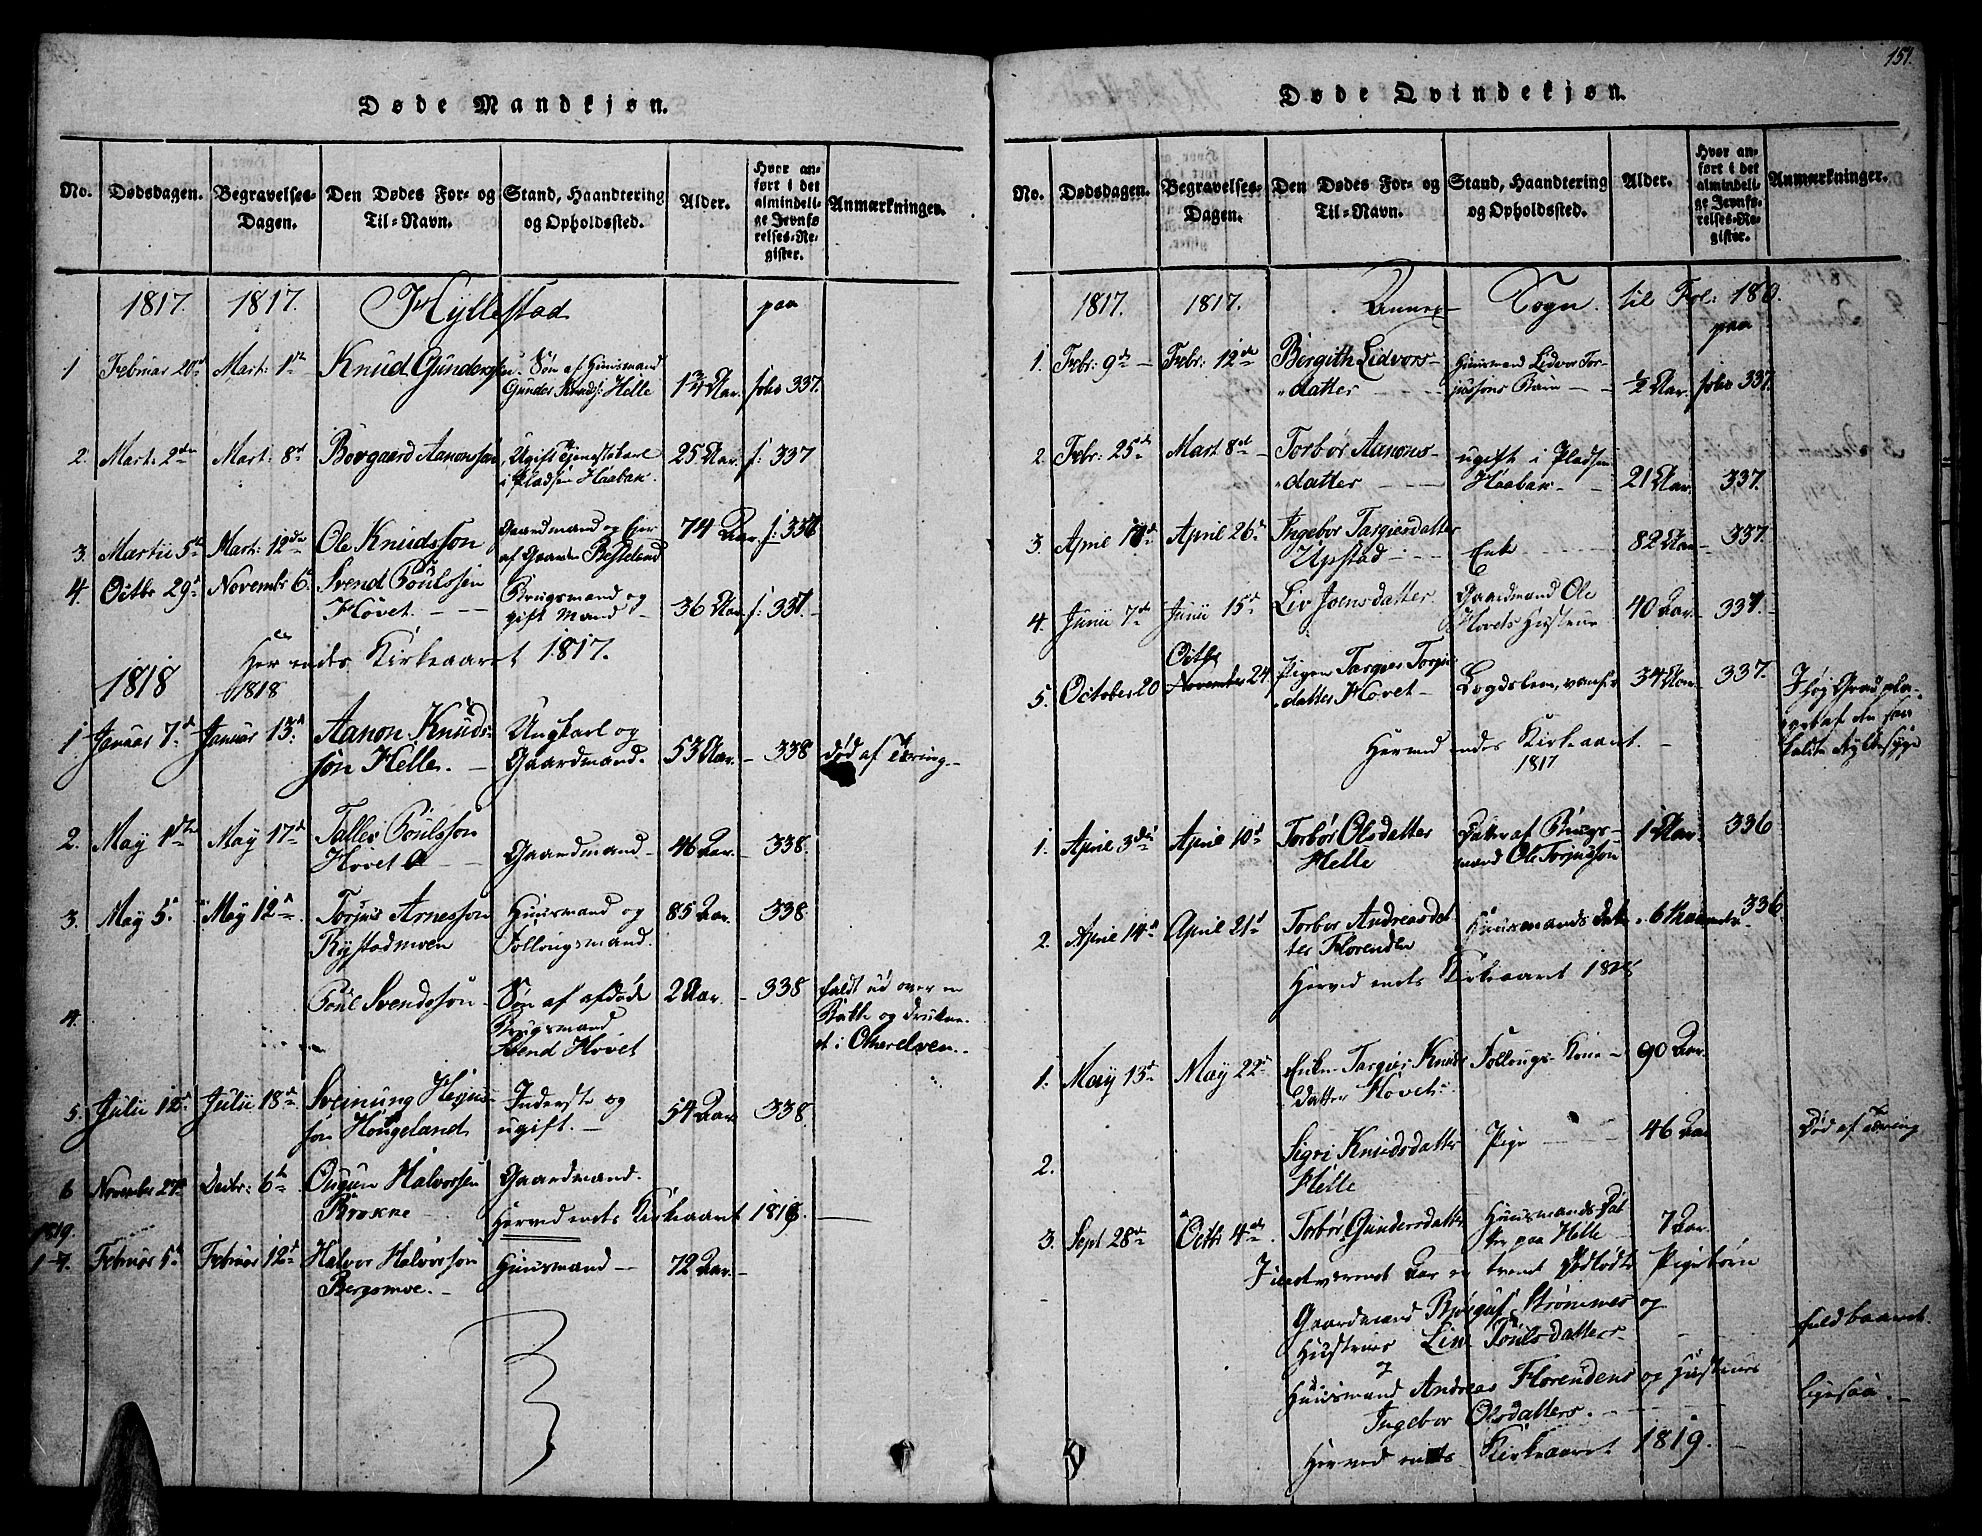 151.
Døde Mandkjøn.
No. Dødsdagen. Begravelses-Dagen. Den Dødes For- og Til-Navn. Stand, Haandtering og Opholdssted. Alder. Hvor anført i det almindelige Jevnførelses-Register. Anmærkninger.
1817. 1817. Hyllestad paa
1 Februar 20de Mart: 1ste Knud Gunderssen Søn af Huusmand
Gunder Knuds: Helle 1¾ Aar. folio 337.
2. Mart: 2den Mart: 8de Borgaard Aanonssøn Ugift Tjenestekarl
i Pladsen Haabak. 25 Aar. f: 337
3. Martii 5te Mart: 12de Ole Knudssøn Gaardmand og Eier
af Gaarden Besteland 74 Aar. f: 337
4. Octbr 29de Novembr 6te Svend Poulssen
Hovet. Brugsmand og
gift Mand 36 Aar f: 337.
Her endes Kirkeaaret 1817.
1818 1818
1 Januar 7de Januar 13de Aanon Knuds-
søn Helle. Ungkarl og
Gaardmand. 53 Aar. 338 død af Tæring.
2. May 1ste May 17de Tallev Poulssøn
Hovet Gaardmand 46 Aar. 338.
3. May 5te May 12te Torjus Arnessøn
Rystadmoen Huusmand og
Follougsmand. 85 Aar. 338.
4. Poul Svendssøn Søn af afdøde
Brugsmand
Svend Hovet 2 Aar. 338 faldt ud over en
Bakke og drukne-
de i Otherelven.
5. Julii 12te Julii 18de Sveinung Herjus-
søn Hougeland Inderste og
ugift. 54 Aar 338.
6 November 27de Decbr: 6te Ougun Halvorssen
Brokne Gaardmand.
Herved endes Kirkeaaret 1818
1819.
1 Februar 5te Februar 12te Halvor Halvorssøn
Bergsmoe. Huusmand 72 Aar.
Døde Qvindekjøn.
No. Dødsdagen. Begravelses-Dagen. Den Dødes For- og Til-Navn. Stand, Haandtering og Opholdssted. Alder. Hvor anført i det almindelige Jevnførelses-Register. Anmærkninger.
1817. 1817. Annex Sogn. til Fol: 180.
paa
1. Febr: 9de Febr: 12te Bergith Lidvors-
datter Huusmand Lidvor Tor-
jussons Barn ½ Aar. folio 337.
2. Febr: 25de Mart 8de Torbør Aanons-
datter ugift i Pladsen
Haabak 21 Aar. 337.
3. April April 26de Ingebor Targiersdatter
Upstad Enke 82 Aar 337.
4. Junii 7de Junii 15de Liv Joensdatter Gaardmand Ole
Hovets Hustrue 40 Aar 337.
5. October 20 Octbr 24 Pigen Targier Torgus-
datter Hovet Logdslem, vanfør 34 Aar 337. I høj Grad pla-
get af den saa
kaldte
Herved endes Kirkeaaret
1817
1. April 3die April 10de Torbør Olsdatter
Helle Datter af Brugs-
mand Ole Torjussøn 1 Aar. 336
2. April 14de April 21de Torbor Andreasdat-
ter Florenden Huusmands Datter 6 336.
Herved endes Kirkeaaret 1818
1. May 15de May 22de Enken Targier Knuds
datter Hovet. Follougs Kone 90 Aar.
2. Sigri Knudsdatter
Helle Pige 46 Aar Død af Tæring
3. Sept 28de Octbr 4de Torbør Gundersdatter Huusmands Dat-
ter paa Helle 7 Aar.
Indeværende Aar er tvende dødfødte Pigebørn
Gaardmand Strømmes og
Hustrues Live Poulsdatters fuldbaaret.
Huusmand Andreas Florendens og Hustrues
Ingebor Olsdatters. ligesaa.
Herved endes Kirkeaaret 1819.